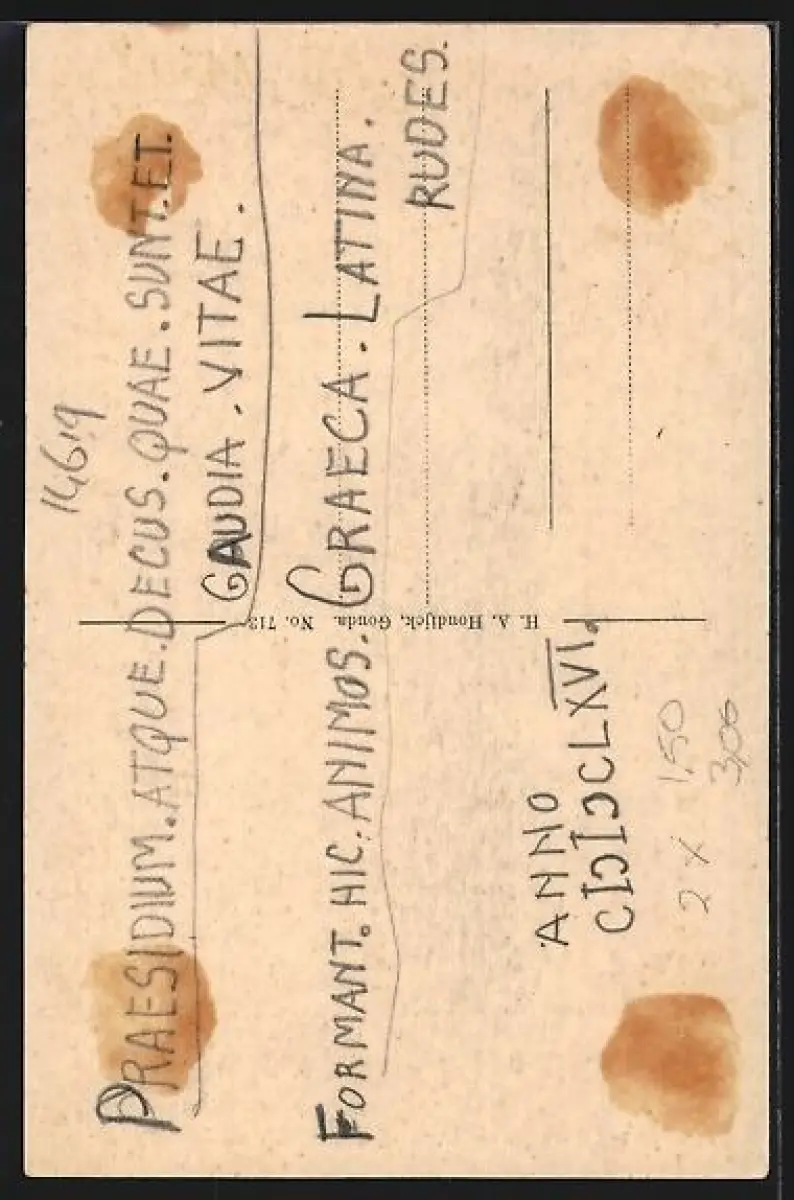 14619
PRAESIDIUM.ATQUE.DECUS.QUAE.SUNT.ET.
GAUDIA.VITAE.
FORMANT.HIC.ANIMOS.GRAECA.LATINA.
RUDES.
H. A. Houdijck, Gouda. No. 713
ANNO
CIↃIↃCLXVI.
2 x 1,50
3,00